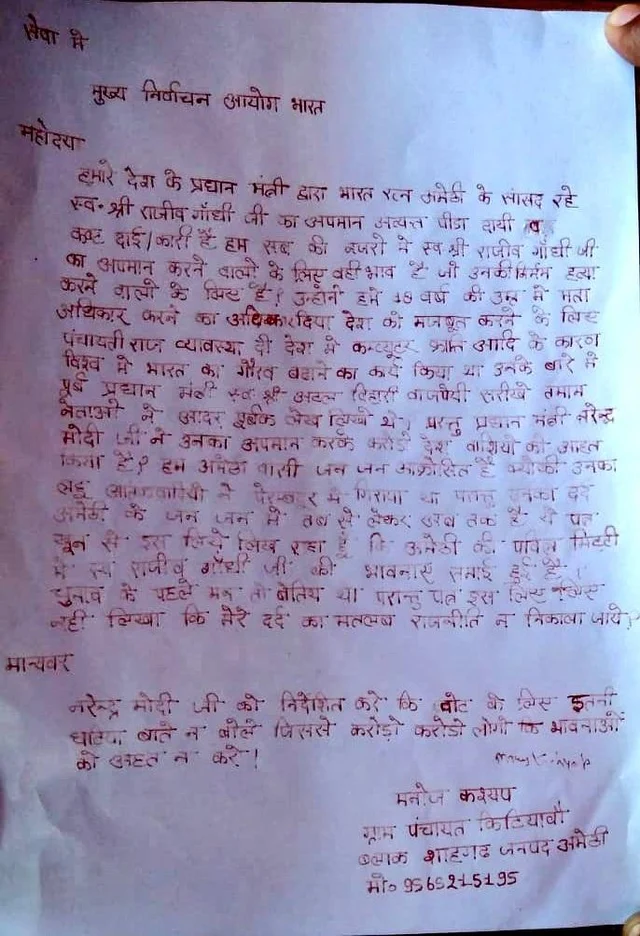 सेवा मे
मुख्य निर्वाचन आयोग भारत
महोदया
हमारे देश के प्रधान मंत्री द्वारा भारत रत्न अमेठी के सांसद रहे
स्व॰ श्री राजीव गाँधी जी का अपमान अत्यन्त पीडा दायी व
कष्ट दाई/कारी है हम सब की नजरो मे स्व श्री राजीव गाँधी जी
का अपमान करने वाल्यो के लिए वही भाव है जो उनकी निर्मम हत्या
करने वाल्यो के लिए है! उन्होने हमे 18 वर्ष की उम्र मे मता
अधिकार करने का अधिकार दिया देश को मजबूत करने के लिए
पंचायती राज व्यावस्था दी देश मे कम्प्यूटर क्रान्ति आदि के कारण
विश्व मे भारत का गौरव बढाने का कार्य किया था उनके बारे मे
पूर्व प्रधान मंत्री स्व श्री अटल विहारी वाजपेयी सरीखे तमाम
नेताओ ने आदर पूर्वक लेख लिखे थे? परन्तु प्रधान मंत्री नरेन्द्र
मोदी जी ने उनका अपमान करके करोडो देश वाशियो को आहत
किया है? हम अमेठी वासी जन जन आक्रोसित है क्योकी उनका
लहू आतंकवादियो ने पेरम्बदूर मे गिराया था परन्तु उनका दर्द
अमेठी के जन जन मे तब से लेकर अब तक है ये पत्र
खून से इस लिये लिख रहा हूँ कि अमेठी की पवित्र मिटटी
मे स्व राजीव गाँधी जी की भावनाएं समाई हुई है।
चुनाव के पहले मन तो बेतिथ था परन्तु पत्र इस लिए
नही लिखा कि मेरे दर्द का मतलब राजनीति न निकाला जाये।
मान्यवर
नरेन्द्र मोदी जी को निर्देशित करे कि वोट के लिए इतनी
घटिया बाते न बोले जिससे करोड़ो करोडो लोगो कि भावनाओं
को आहत न करे!
मनोज कश्यप
ग्राम पंचायत किटियावाँ
ब्लाक शाहगढ जनपद अमेठी
मो॰ 9565215195